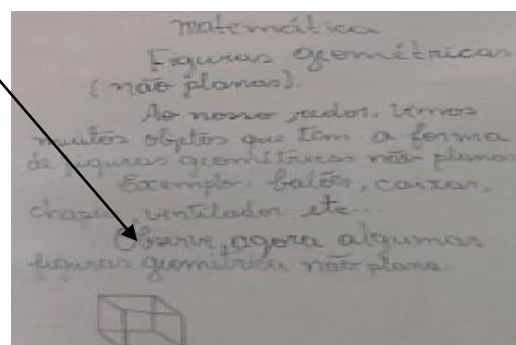 matemática
Figuras Geométricas
(não planas).
Ao nosso redor, vimos
muitos objetos que têm a forma
de figuras geométricas não planas
Exemplo. balões, caixas,
chapéu, ventilador etc...
Observe, agora algumas
figuras geométrica não plana.